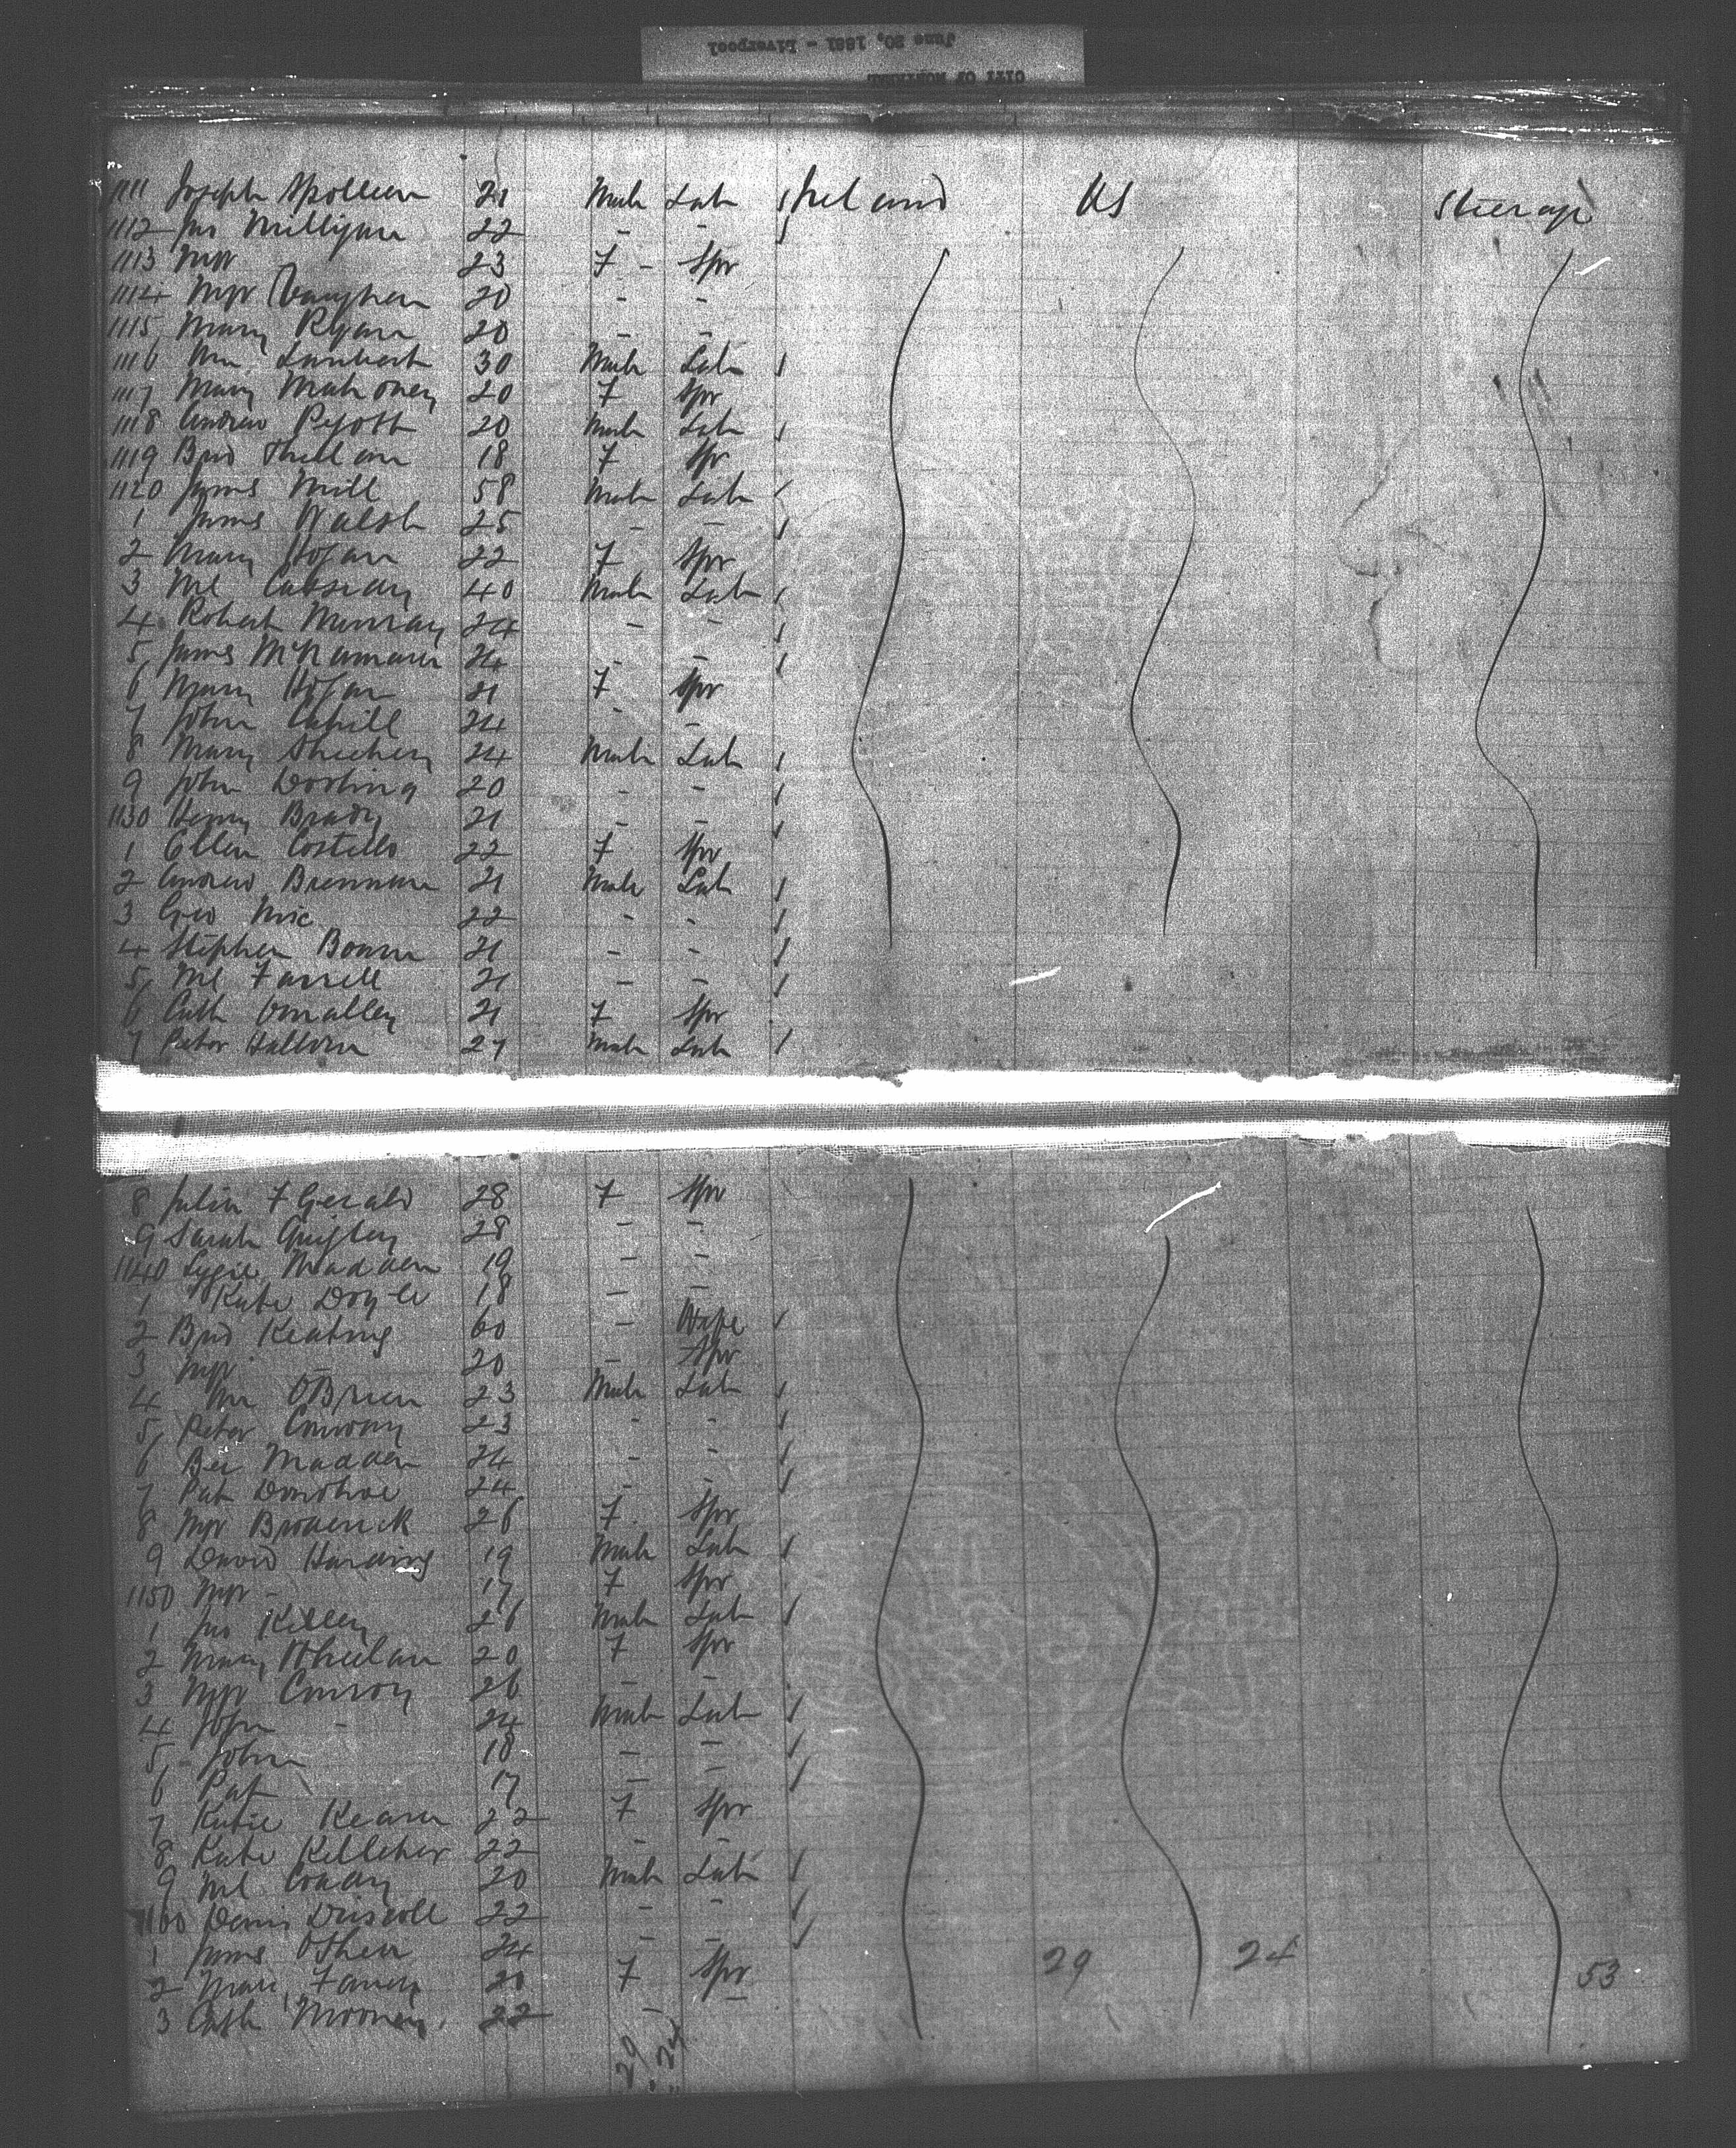 CITY OF MONTREAL
June 20, 1881 - Liverpool
1111 Joseph Spolleen 21 Male Lab Ireland US Steerage
1112 Jno Milligan 22 - -
1113 Mgr 23 F - Spr
1114 Mgr Vaughan 20 - -
1115 Mary Ryan 20 - -
1116 Wm Lambert 30 Male Lab
1117 Mary Mahoney 20 F Spr
1118 Andrew 20 Male Lab
1119 Brid 18 F Spr
1120 James Mill 58 Male Lab
1 James Walsh 25 - -
2 Mary Hogan 22 F Spr
3 Ml 40 Male Lab
4 Robert Murray 24 - -
5 James McNamara 24 - -
6 Mary Hogan 21 F Spr
7 John Cahill 24 - -
8 Mary Sheehey 24 Male Lab
9 John 20 - -
1130 Henry Brady 21 - -
1 Ellen Costello 22 F Spr
2 Andrew Brennan 21 Male Lab
3 Geo 22 - -
4 Stephen 21 - -
5 Ml Farrell 21 - -
6 Cath Omalley 21 F Spr
7 Peter 27 Male Lab
8 Julia FGerald 28 F Spr
9 Sarah Quigley 28 - -
1140 Lizzie Madden 19 - -
1 Kate Doyle 18 - -
2 Brid Keating 60 - Wife
3 Mgr - 20 - Spr
4 Wm OBrien 23 Male Lab
5 Peter Conway 23 - -
6 Madden 24 - -
7 Pat Donohoe 24 - -
8 Mgr Broderick 26 F Spr
9 David Harding 19 Male Lab
1150 Mgr - 17 F Spr
1 Jno Kelley 26 Male Lab
2 Mary Wheelan 20 F Spr
3 Mgr Conroy 26 - -
4 John - 24 Male Lab
5 John 18 - -
6 Pat 17 - -
7 Katie Kearn 22 F Spr
8 Kate Kelleher 22 - -
9 Ml Coady 20 Male Lab
1160 Denis Driscoll 22 - -
1 James OShea 24 - -
2 Mary 20 F Spr
3 Cath Mooney 22 - -
29 24 53
29 24